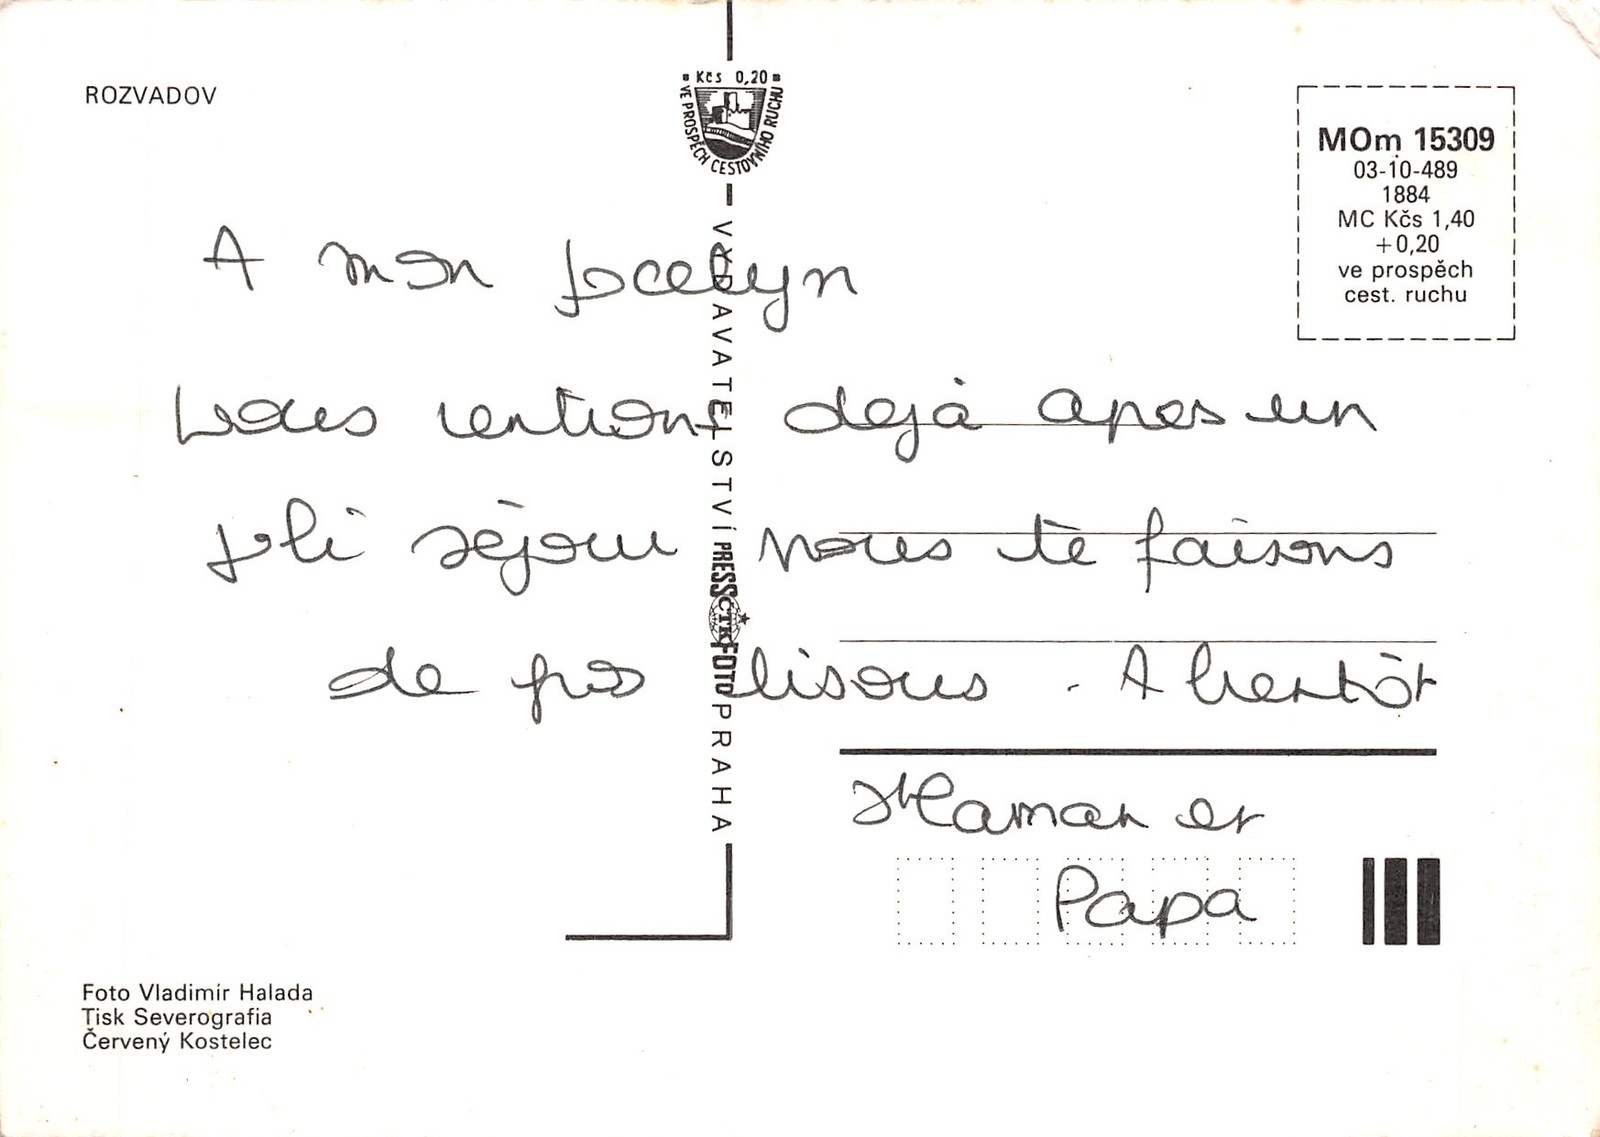 ROZVADOV
Kčs 0,20
VE PROSPĚCH CESTOVNÍHO RUCHU
MOm 15309
03-10-489
1884
MC Kčs 1,40
+0,20
ve prospěch
cest. ruchu
A mon Jocelyn
Nous rentrons dejà apres un
joli séjour nous te faisons
de gros bisous. A bientôt
Maman et
Papa
VYDAVATELSTVÍ PRESSFOTO PRAHA
ČTK
Foto Vladimír Halada
Tisk Severografia
Červený Kostelec